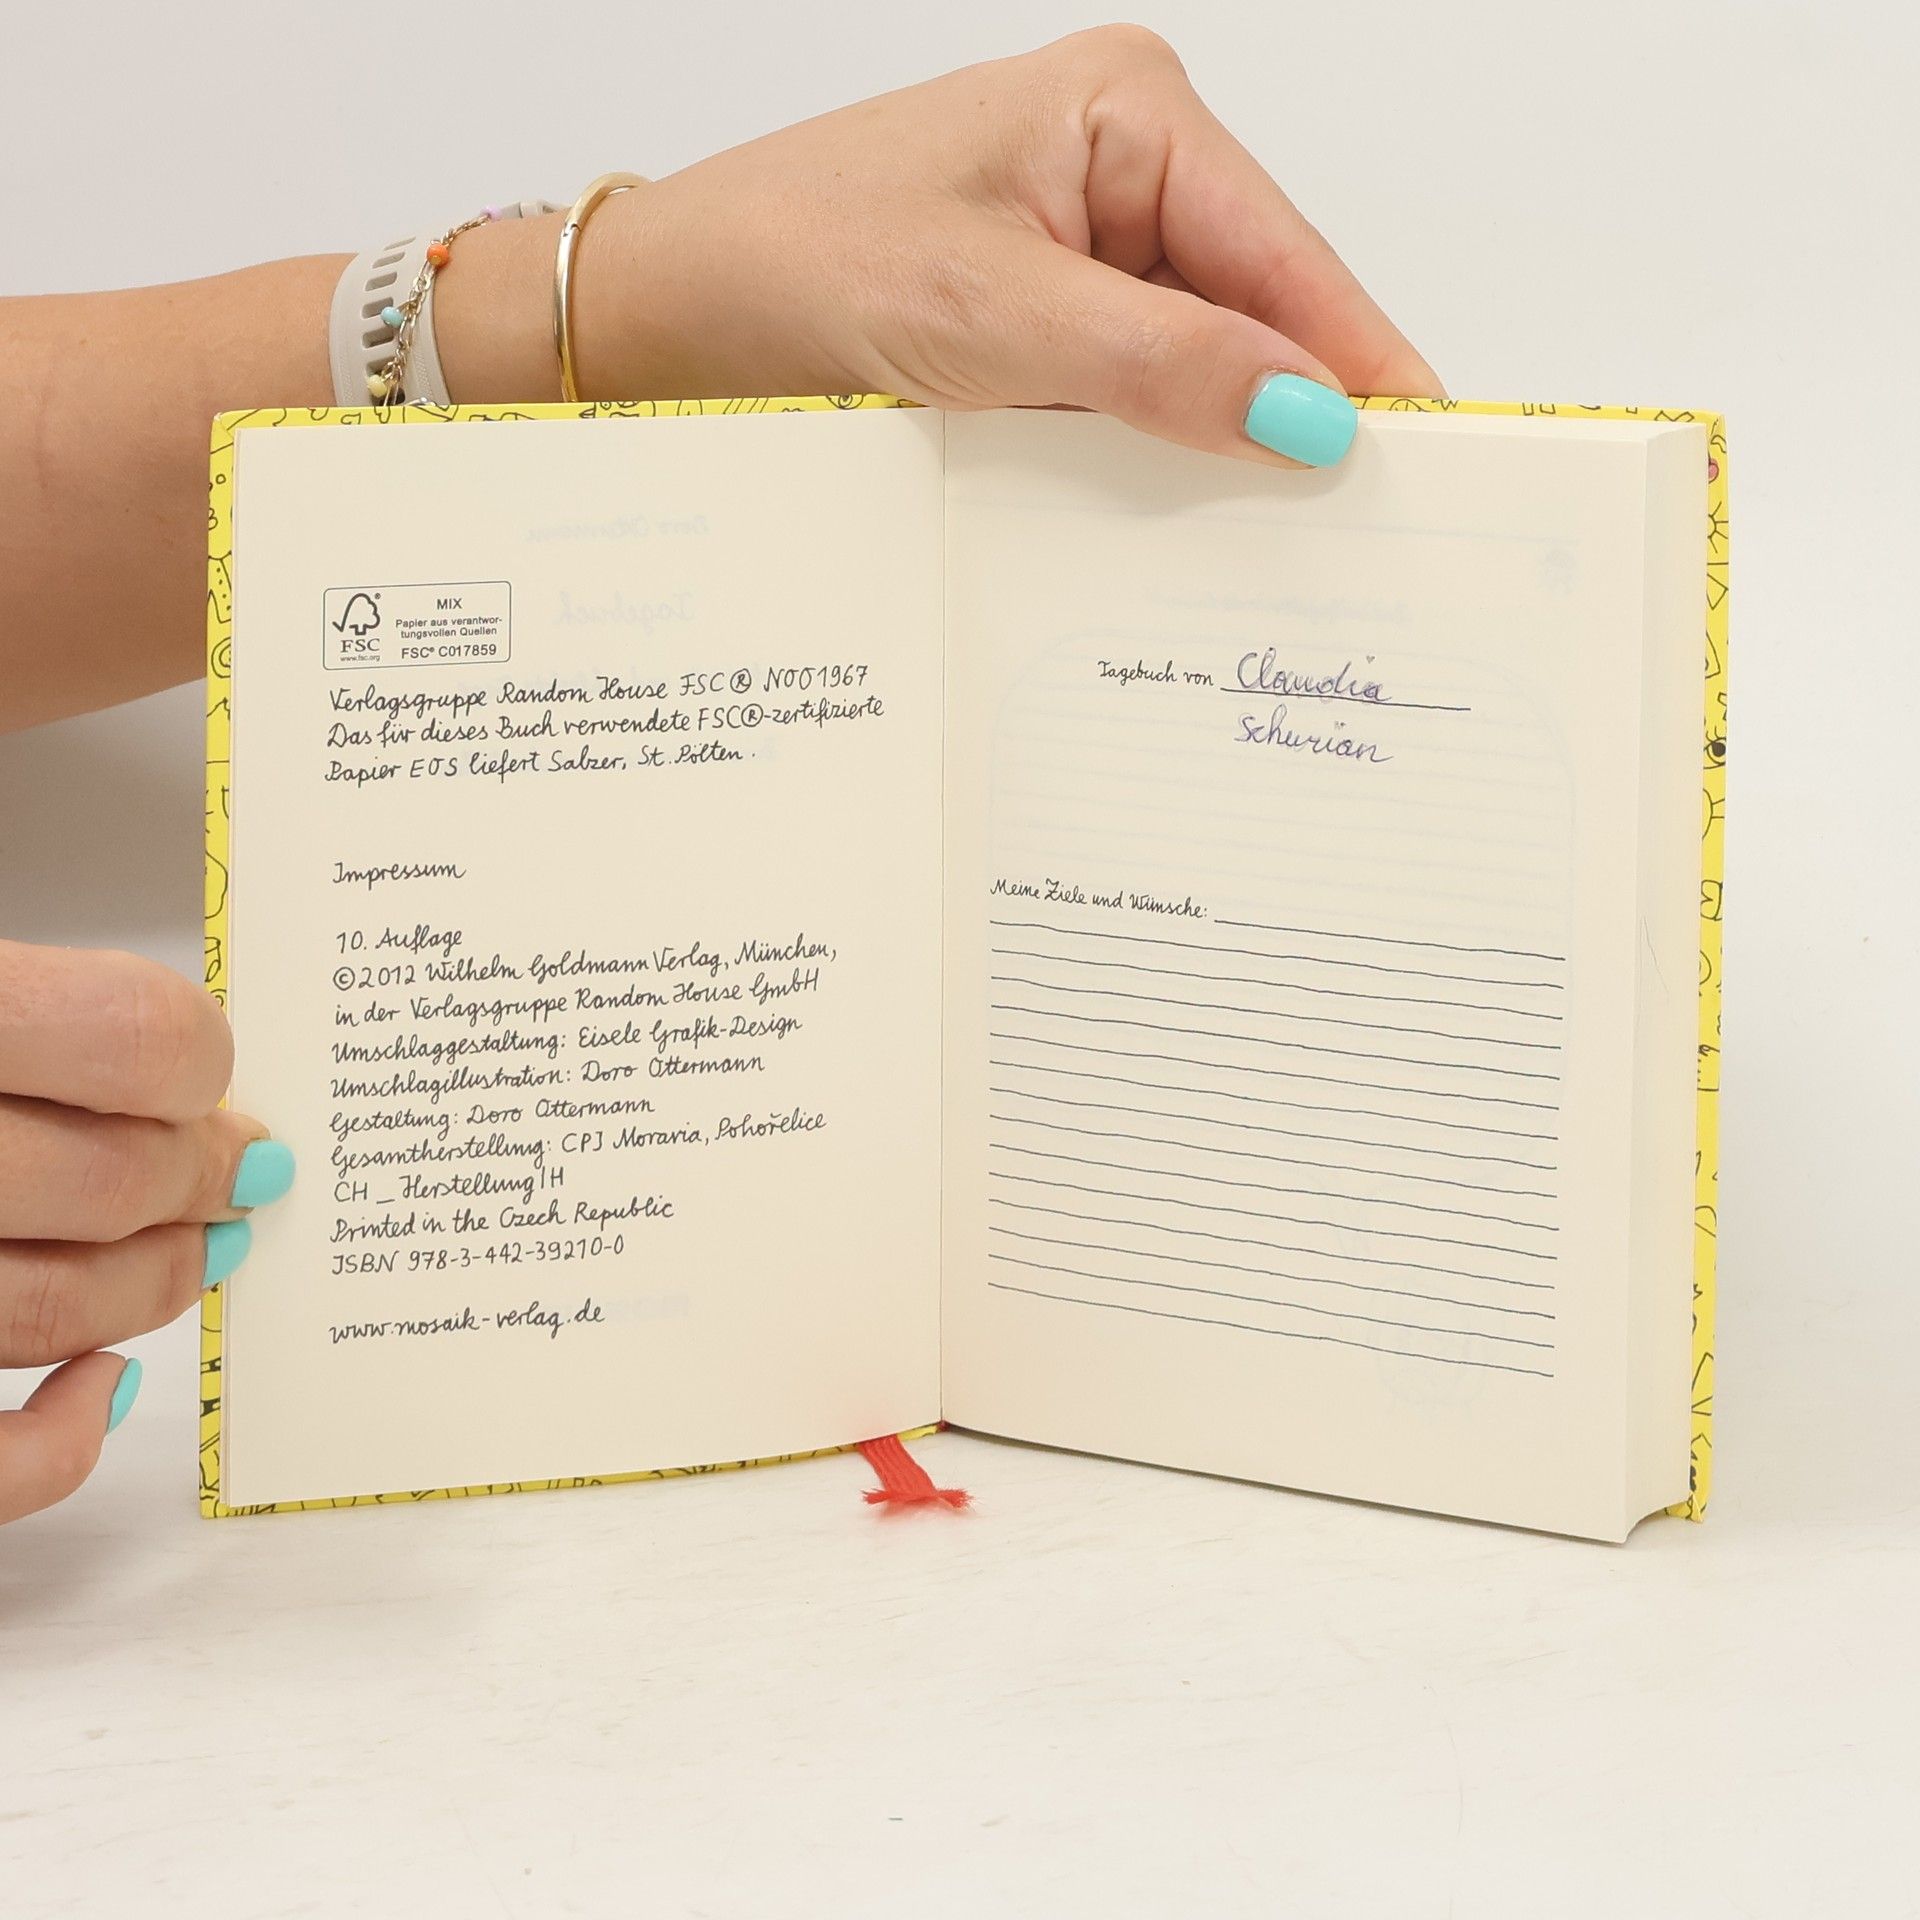 MIX
Papier aus verantwor-
tungsvollen Quellen
FSC® C017859
FSC
www.fsc.org
Verlagsgruppe Random House FSC® N001967
Das für dieses Buch verwendete FSC®-zertifizierte
Papier EOS liefert Salzer, St. Pölten.
Impressum
10. Auflage
©2012 Wilhelm Goldmann Verlag, München,
in der Verlagsgruppe Random House GmbH
Umschlaggestaltung: Eisele Grafik-Design
Umschlagillustration: Doro Ottermann
Gestaltung: Doro Ottermann
Gesamtherstellung: CPI Moravia, Pohořelice
CH _ Herstellung IH
Printed in the Czech Republic
ISBN 978-3-442-39210-0
www.mosaik-verlag.de
Tagebuch von Claudia
Schurian
Meine Ziele und Wünsche: